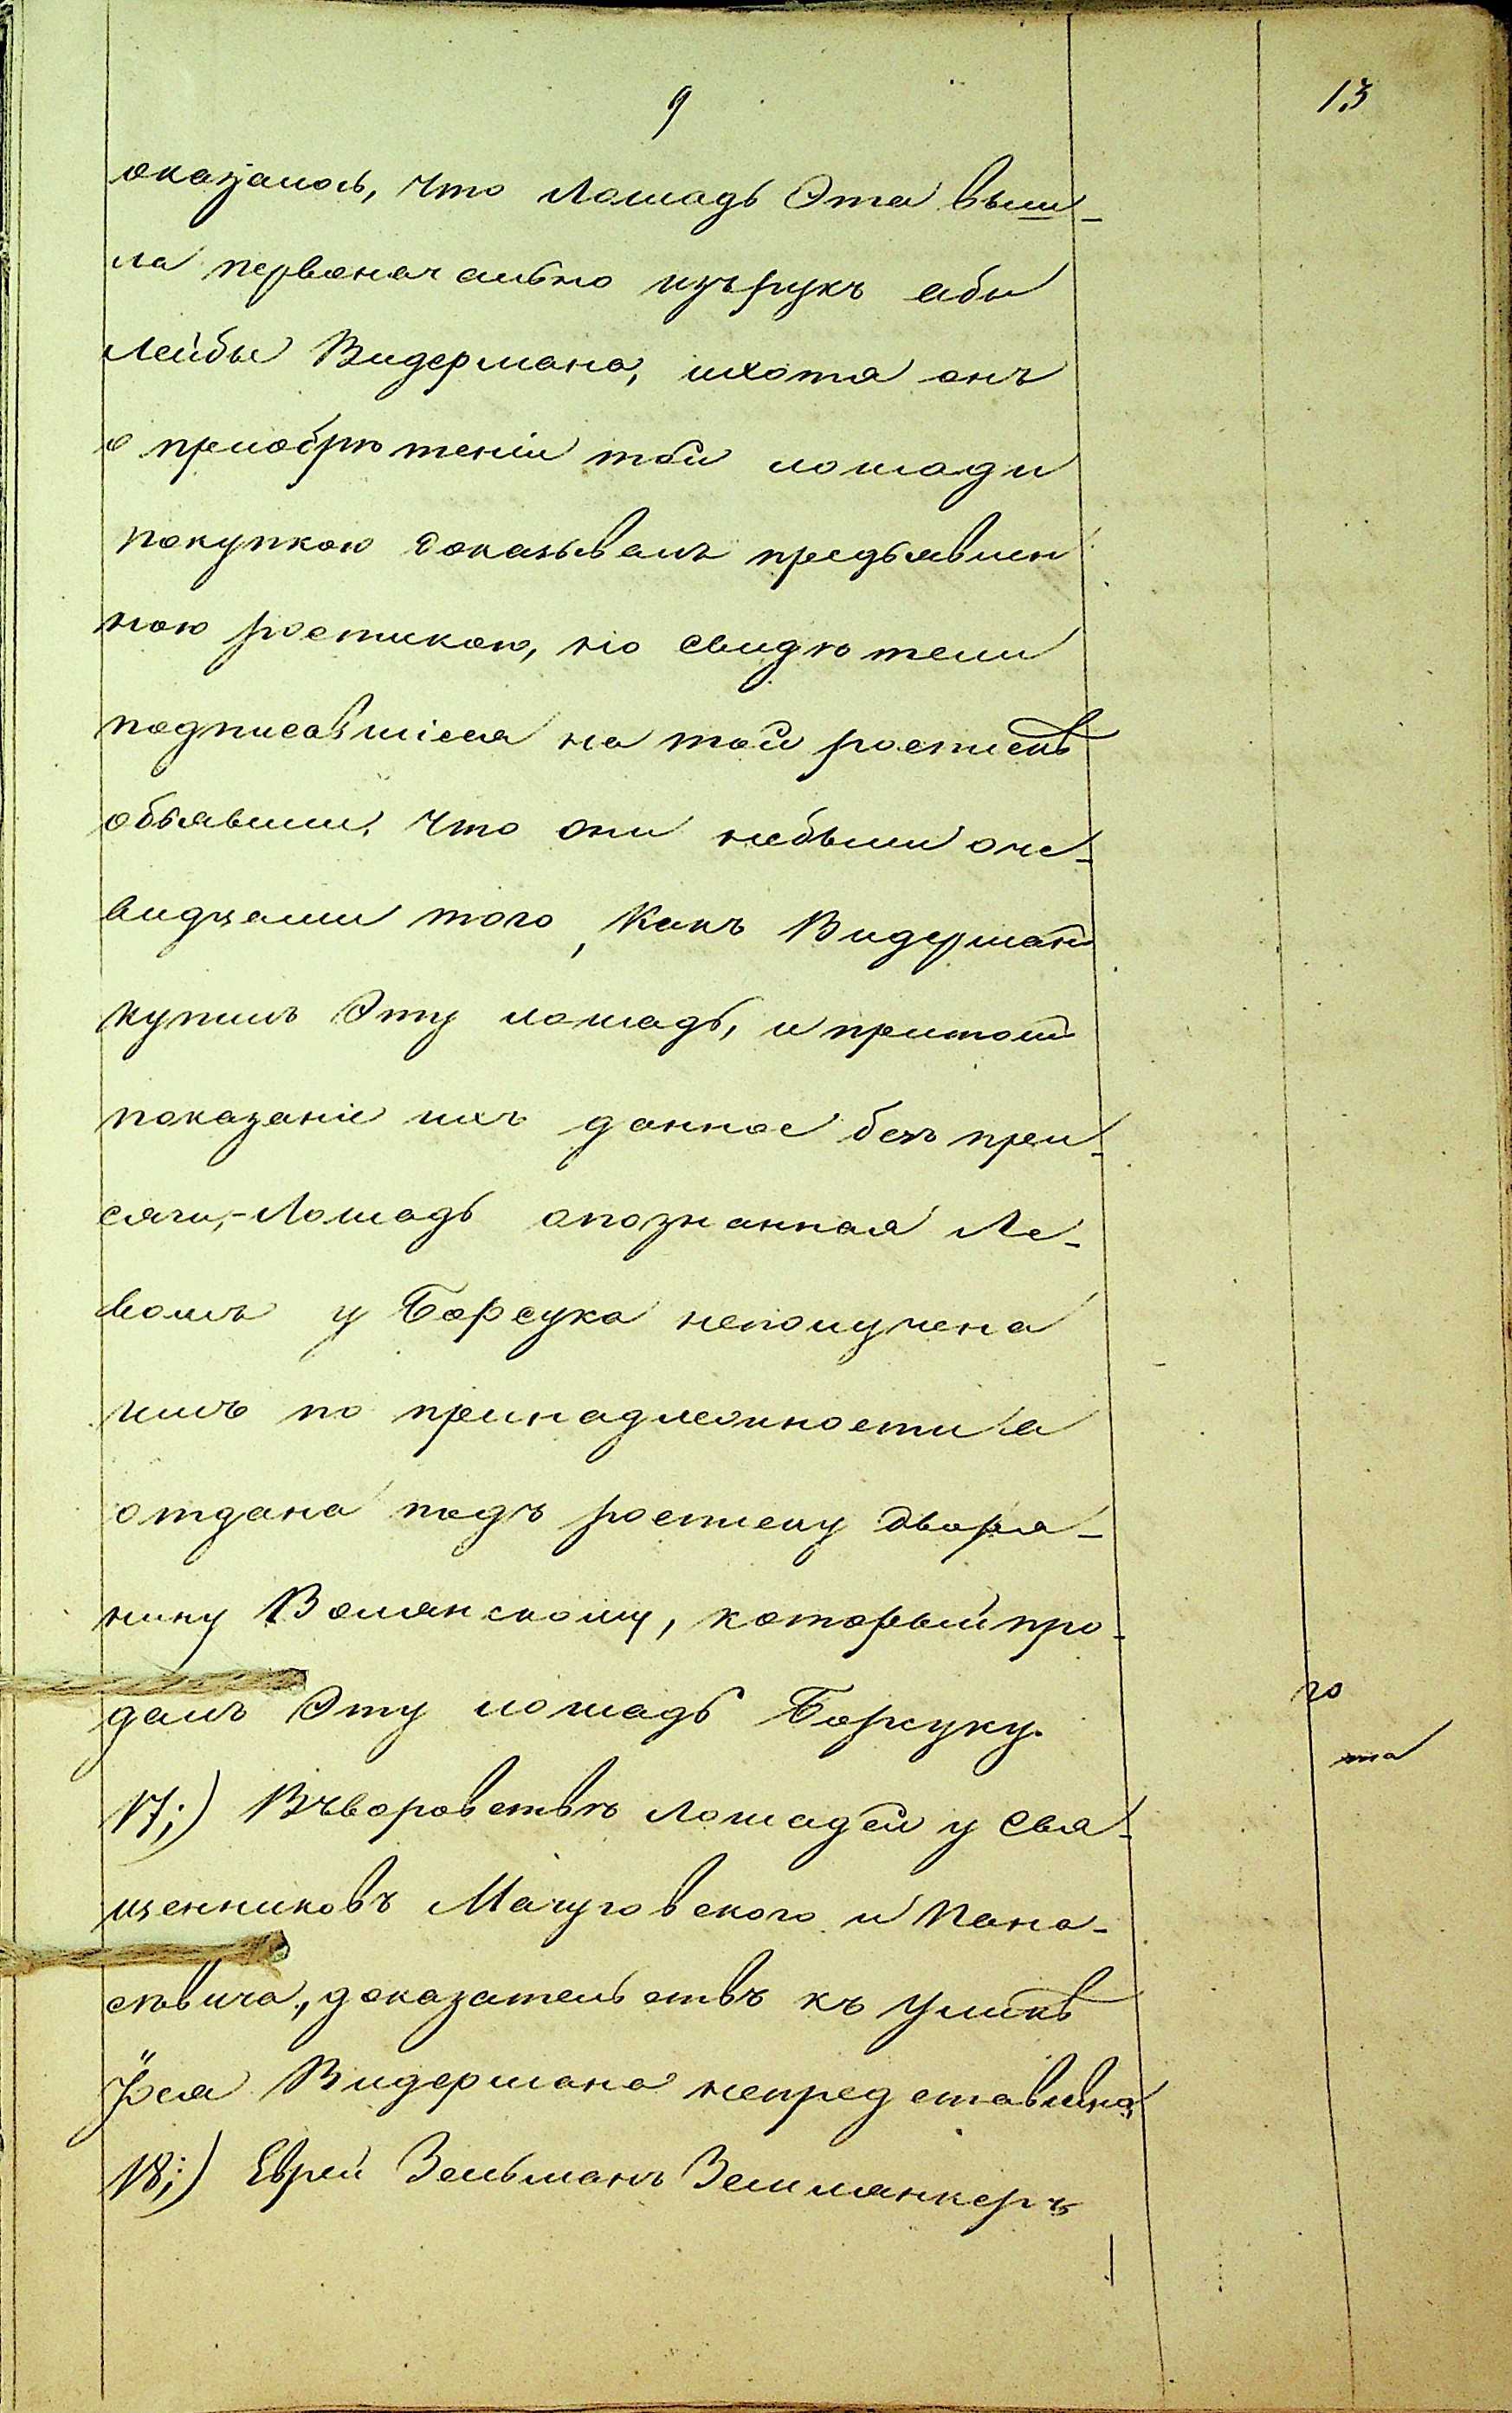 9
13
оказалось, что лошадь Эта выш-
ла первоначально изъ рукъ Абы
Лейбы Видермана, и хотя онъ
о приобрѣтеніи той лошади
покупкою доказывалъ предъявлен
ною роспискою, но свидѣтели
подписавшіеся на той роспискѣ
объявили, что они небыли оче-
видцами того, Какъ Видерманъ
купилъ Эту лошадь, и притомъ
показаніе ихъ данное безъ при-
сяги,- Лошадь опознанная Ле-
вомъ у Борсука неполучена
имъ по принадлежности а
отдана подъ росписку дворя-
нину Волянскому, который про-
далъ Эту лошадь Борсуку.
17;) Въ воровствѣ лошадей у Свя-
щенниковъ Мачуговскаго и Пана-
севича, доказательствъ къ уликѣ
Іося Видермана непредставлено,
18;) Еврей Зельманъ Землянкеръ
го
та